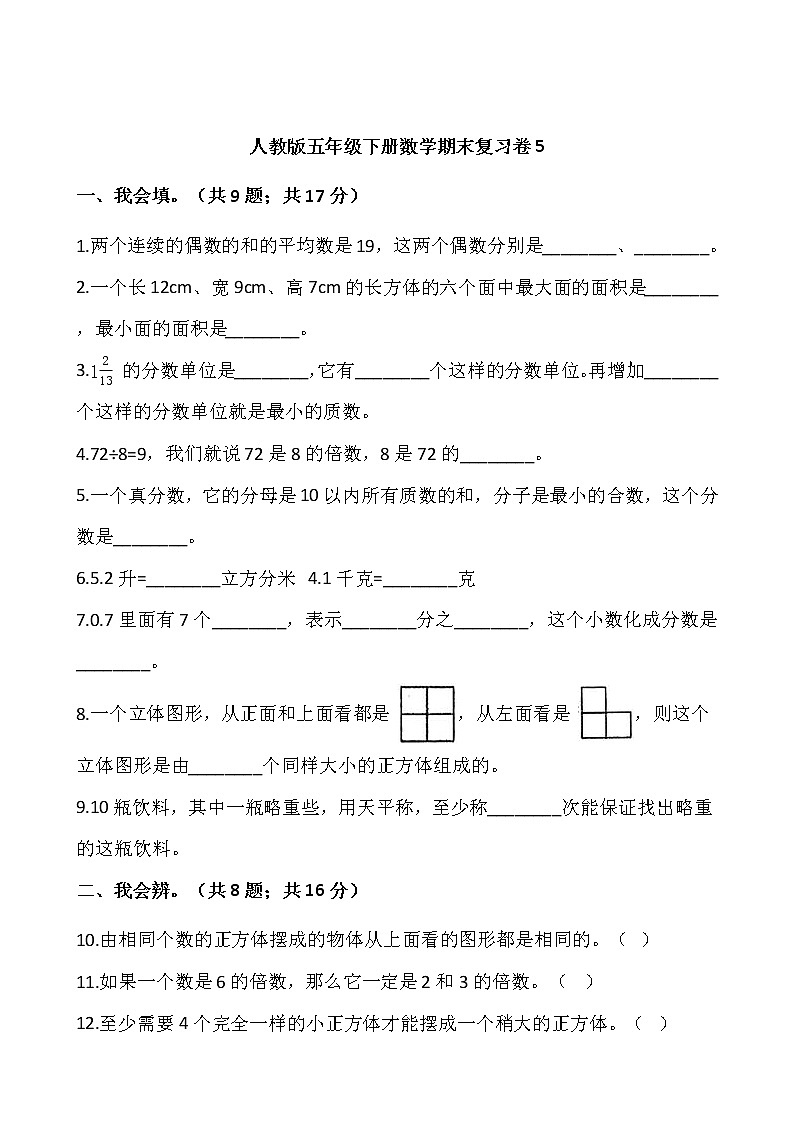 人教版五年级下册数学期末复习卷 5
一、我会填。（共 9 题；共 17 分）
1.两个连续的偶数的和的平均数是 19，这两个偶数分别是________、________。
2.一个长 12cm、宽 9cm、高 7cm 的长方体的六个面中最大面的面积是________
，最小面的面积是________。
3.1 2/13 的分数单位是________,它有________个这样的分数单位。再增加________
个这样的分数单位就是最小的质数。
4.72÷8=9，我们就说 72 是 8 的倍数，8 是 72 的________。
5.一个真分数，它的分母是 10 以内所有质数的和，分子是最小的合数，这个分
数是________。
6.5.2 升=________立方分米 4.1 千克=________克
7.0.7 里面有 7 个________，表示________分之________，这个小数化成分数是
________。
8.一个立体图形，从正面和上面看都是 ，从左面看是 ，则这个
立体图形是由________个同样大小的正方体组成的。
9.10 瓶饮料，其中一瓶略重些，用天平称，至少称________次能保证找出略重
的这瓶饮料。
二、我会辨。（共 8 题；共 16 分）
10.由相同个数的正方体摆成的物体从上面看的图形都是相同的。（ ）
11.如果一个数是 6 的倍数，那么它一定是 2 和 3 的倍数。（ ）
12.至少需要 4 个完全一样的小正方体才能摆成一个稍大的正方体。（ ）